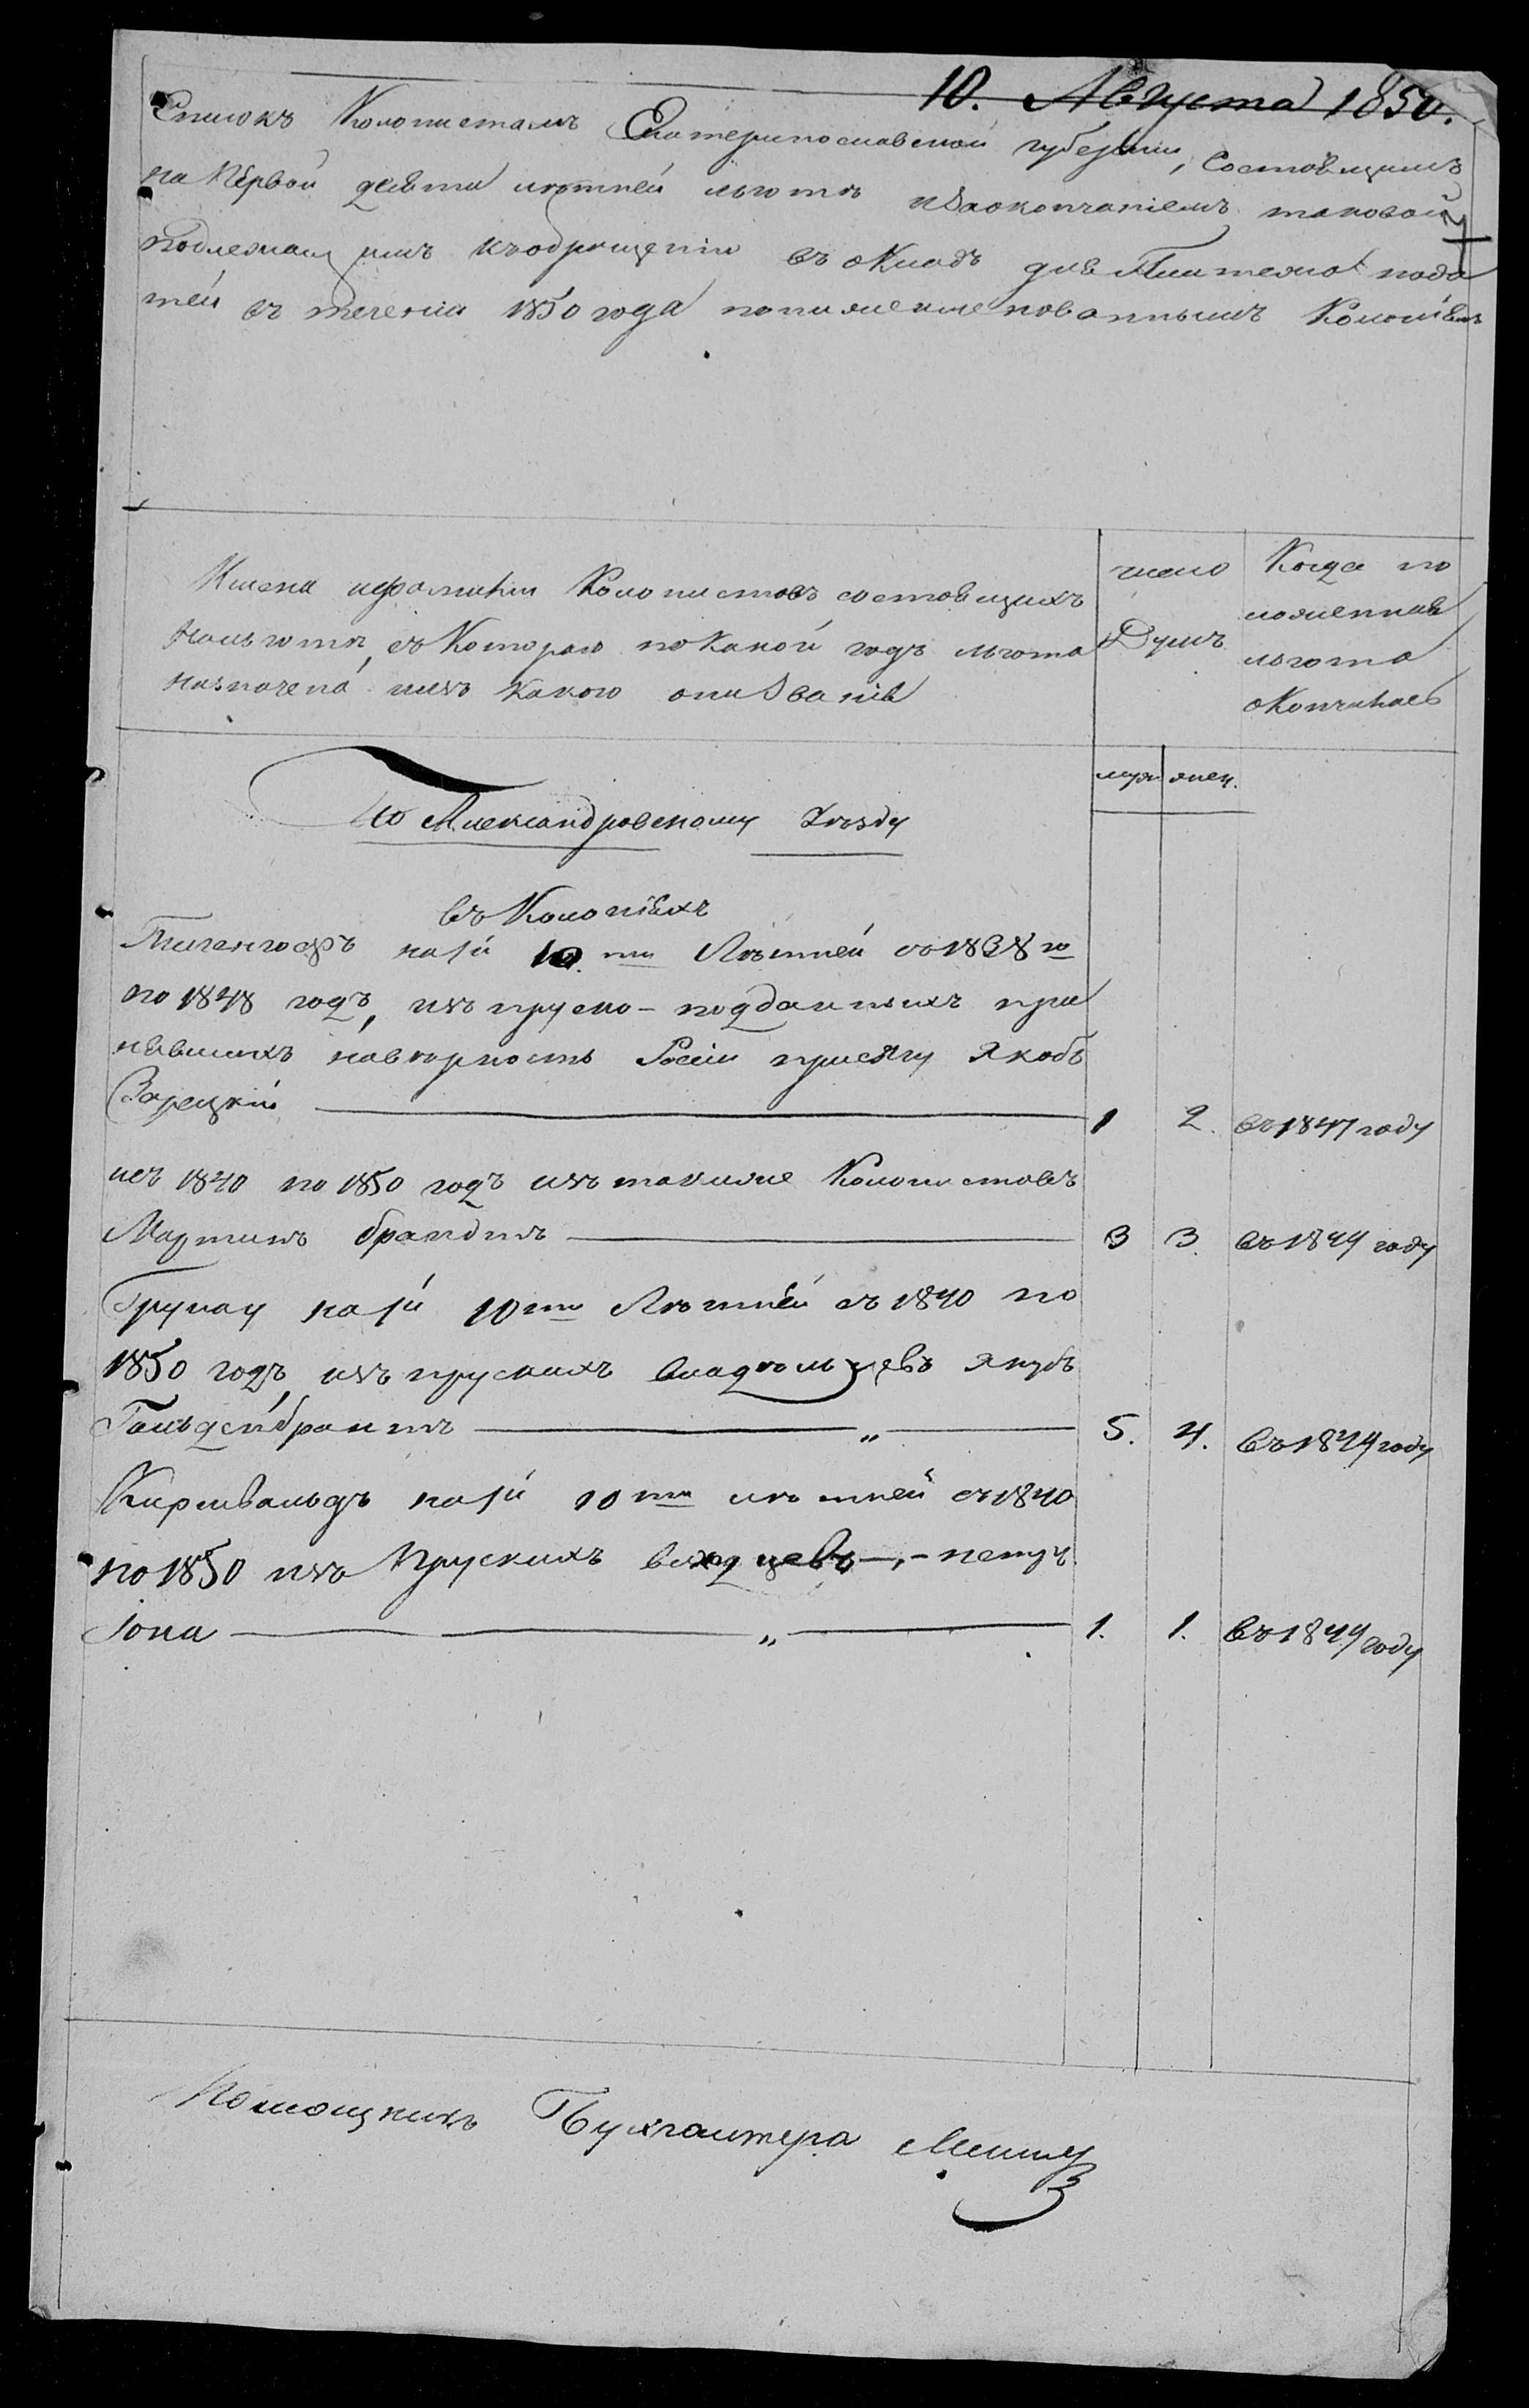 10. Августа 1850.
Списокъ Колонистамъ Екатеринославской губерніи, Состоящимъ
на Первой десяти лѣтней льготѣ и за окончаніемъ таковой
подлежащимъ къ обращенію въ окладъ для Платежа пода
тей въ теченіи 1850 года по нижеименованнымъ Колоніямъ
Имена и фамиліи Колонистовъ состоящихъ
На льготѣ, съ Котораго по Какой годъ льгота
назначена и изъ какого они званія
число
Душъ
Когда по
ложенная
льгота
окончилась
муж. жен.
По Александровскому Уѣзду
въ Колоніяхъ
Тигенгофъ на 1й 10ти Лѣтней съ 1838го
по 1848 годъ, изъ пруско-подданныхъ при
нявшихъ на вѣрность Росіи присягу Якобъ
Зарецкій 1 2. въ 1847 году
и съ 1840 по 1850 годъ изъ такихже Колонистовъ
Мартинъ брандтъ 3 3. въ 1849 году
Грунау на 1й 10ти Лѣтней съ 1840 по
1850 годъ, изъ прускихъ владѣльцевъ якубъ
Гильдебрантъ „ 5. 4. въ 1849 году
Киршвальдъ на 1й 10ти лѣтней съ 1840
по 1850 изъ Прускихъ выходцевъ
Іона „ 1. 1. въ 1849 году
Помощникъ Бухгалтера